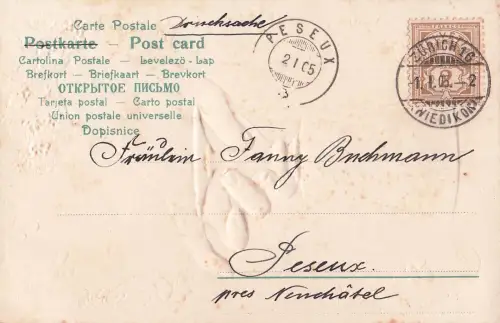 Carte Postale Drucksache
Postkarte – Post card
Cartolina Postale – Levelező-Lap
Brefkort – Briefkaart – Brevkort
ОТКРЫТОЕ ПИСЬМО
Tarjeta postal – Carto postal
Union postale universelle
Dopisnice
PESEUX
2 I 05
ZÜRICH 16
WIEDIKON
Fräulein Fanny Buchmann
Peseux
près Neuchâtel